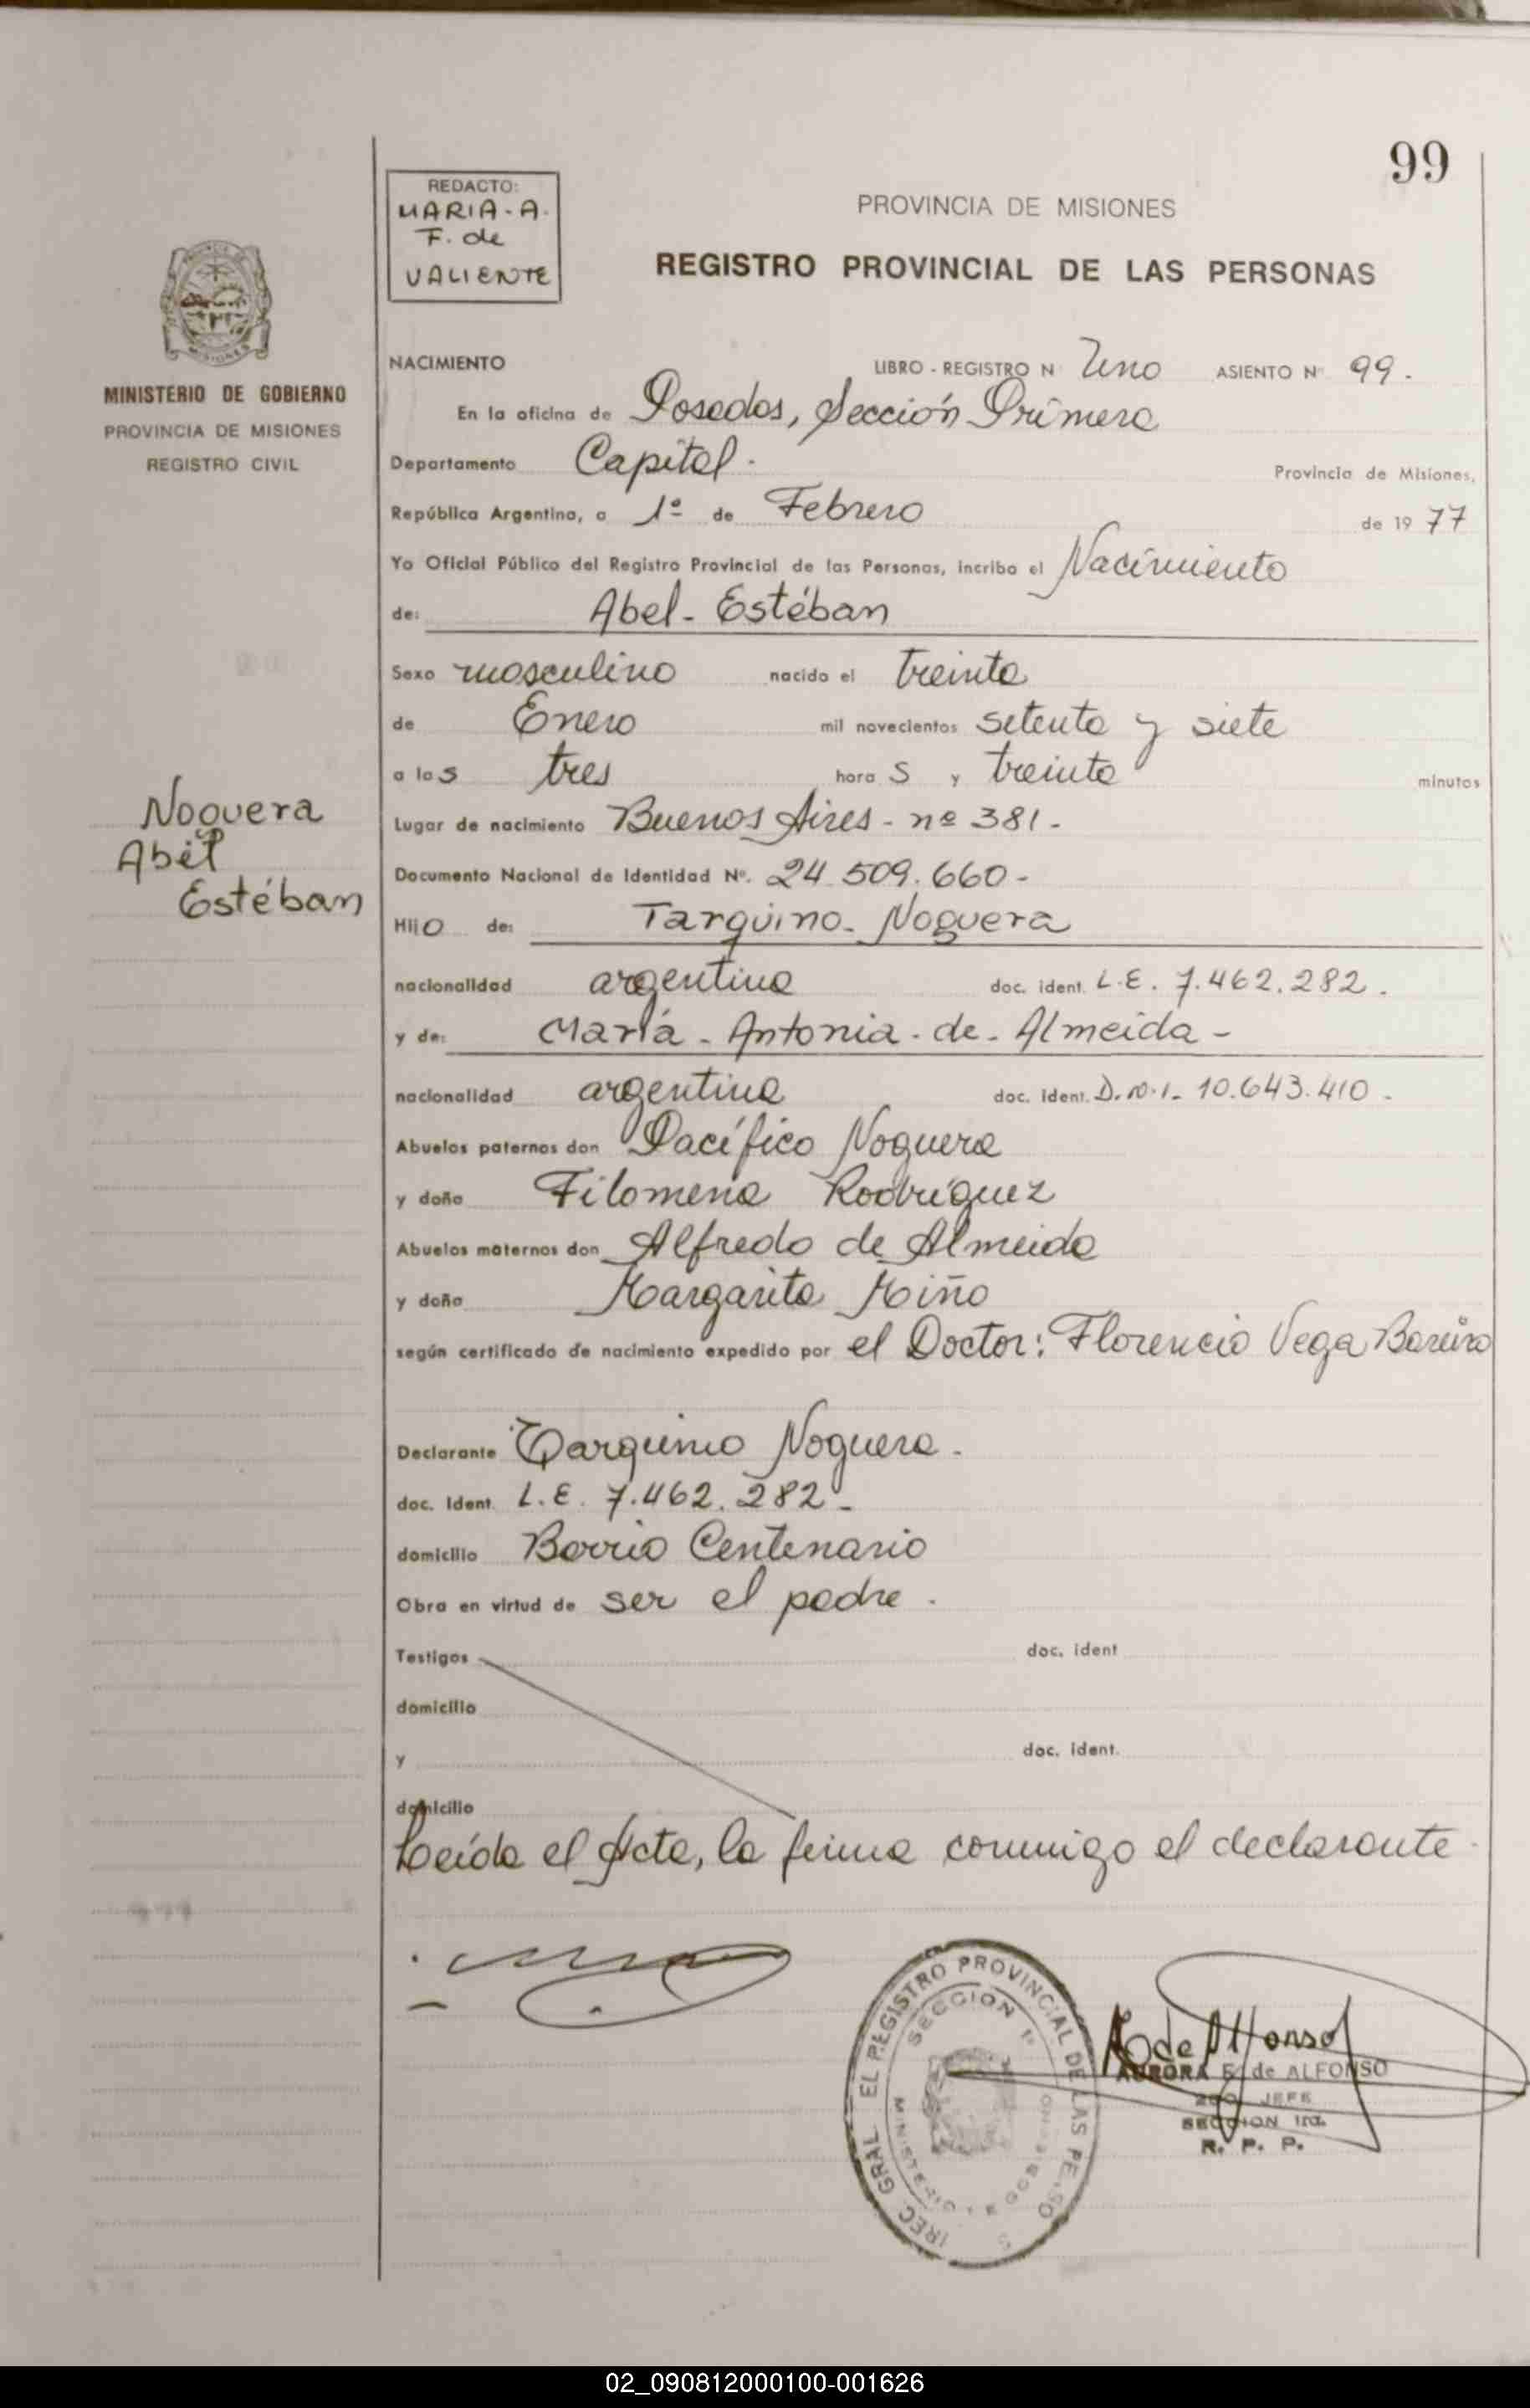 99
REDACTO:
MARIA-A.
F. de
VALIENTE
PROVINCIA DE MISIONES
REGISTRO PROVINCIAL DE LAS PERSONAS
MINISTERIO DE GOBIERNO
PROVINCIA DE MISIONES
REGISTRO CIVIL
NACIMIENTO LIBRO - REGISTRO N Uno ASIENTO Nº 99.
En la oficina de Posadas, Sección Primera
Departamento Capital. Provincia de Misiones,
República Argentina, a 1º de Febrero de 1977
Yo Oficial Público del Registro Provincial de las Personas, inscribo el Nacimiento
de: Abel - Estéban
Sexo masculino nacido el treinta
de Enero mil novecientos setenta y siete
a las tres horas y treinta minutos
Noguera
Abel
Estéban
Lugar de nacimiento Buenos Aires - nº 381 -
Documento Nacional de Identidad Nº. 24.509.660 -
Hijo de: Tarquino - Noguera
nacionalidad argentina doc. ident. L.E. 7.462.282.
y de: María - Antonia - de - Almeida -
nacionalidad argentina doc. ident. D.N.I. - 10.643.410 -
Abuelos paternos don Pacífico Noguera
y doña Filomena Rodríguez
Abuelos maternos don Alfredo de Almeida
y doña Margarita Miño
según certificado de nacimiento expedido por el Doctor: Florencio Vega Bareiro
Declarante Tarquino Noguera -
doc. Ident. L.E. 7.462.282 -
domicilio Barrio Centenario
Obra en virtud de ser el padre.
Testigos doc. ident
domicilio
y doc. ident.
domicilio
Leída el Acta, la firma conmigo el declarante
IREC. GRAL EL REGISTRO PROVINCIAL DE LAS PERSO S
SECCION 1ª
MINISTERIO DE GOBIERNO
A de Alfonso
AURORA E. de ALFONSO
2DO JEFE
SECCION 1ra.
R. P. P.
02_090812000100-001626